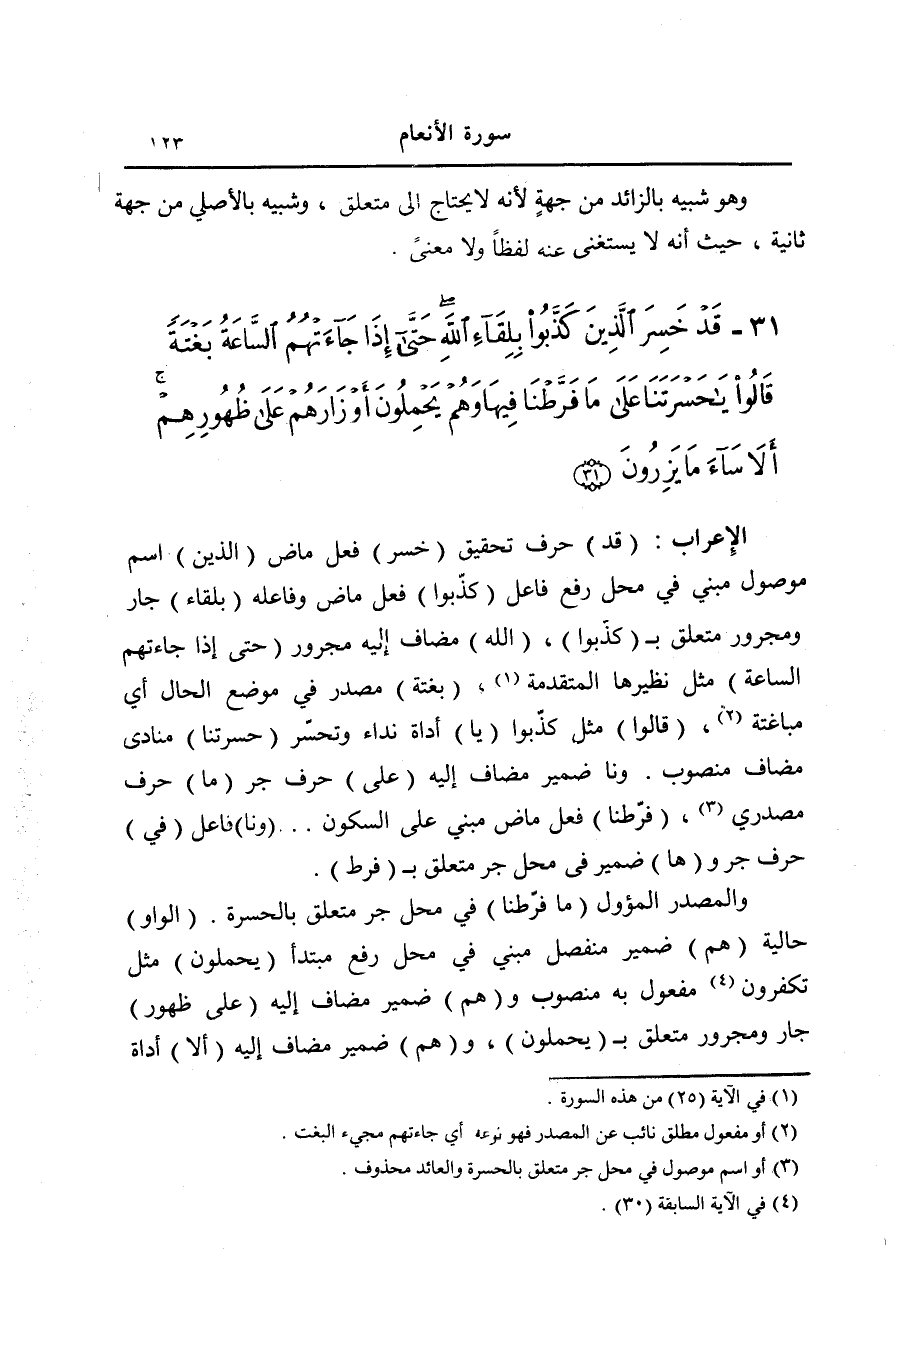 سورة الأنعام ١٢٣
وهو شبيه بالزائد من جهةٍ لأنه لايحتاج الى متعلق ، وشبيه بالأصلي من جهة
ثانية ، حيث أنه لا يستغنى عنه لفظاً ولا معنىً .
٣١ - قَدْ خَسِرَ ٱلَّذِينَ كَذَّبُوا۟ بِلِقَآءِ ٱللَّهِ ۖ حَتَّىٰٓ إِذَا جَآءَتْهُمُ ٱلسَّاعَةُ بَغْتَةً
قَالُوا۟ يَٰحَسْرَتَنَا عَلَىٰ مَا فَرَّطْنَا فِيهَا وَهُمْ يَحْمِلُونَ أَوْزَارَهُمْ عَلَىٰ ظُهُورِهِمْ ۚ
أَلَا سَآءَ مَا يَزِرُونَ ﴿٣١﴾
الإعراب : ( قد ) حرف تحقيق ( خسر ) فعل ماض ( الذين ) اسم
موصول مبني في محل رفع فاعل ( كذّبوا ) فعل ماض وفاعله ( بلقاء ) جار
ومجرور متعلق بـ ( كذّبوا ) ، ( الله ) مضاف إليه مجرور ( حتى إذا جاءتهم
الساعة ) مثل نظيرها المتقدمة (١) ، ( بغتة ) مصدر في موضع الحال أي
مباغتة (٢) ، ( قالوا ) مثل كذّبوا ( يا ) أداة نداء وتحسّر ( حسرتنا ) منادى
مضاف منصوب . ونا ضمير مضاف إليه ( على ) حرف جر ( ما ) حرف
مصدري (٣) ، ( فرّطنا ) فعل ماض مبني على السكون . . . (ونا) فاعل ( في )
حرف جر و ( ها ) ضمير في محل جر متعلق بـ ( فرط ) .
والمصدر المؤول ( ما فرّطنا ) في محل جر متعلق بالحسرة . ( الواو )
حالية ( هم ) ضمير منفصل مبني في محل رفع مبتدأ ( يحملون ) مثل
تكفرون (٤) مفعول به منصوب و ( هم ) ضمير مضاف إليه ( على ظهور )
جار ومجرور متعلق بـ ( يحملون ) ، و ( هم ) ضمير مضاف إليه ( ألا ) أداة
(١) في الآية (٢٥) من هذه السورة .
(٢) أو مفعول مطلق نائب عن المصدر فهو نوعه أي جاءتهم مجيء البغت .
(٣) أو اسم موصول في محل جر متعلق بالحسرة والعائد محذوف .
(٤) في الآية السابقة (٣٠) .